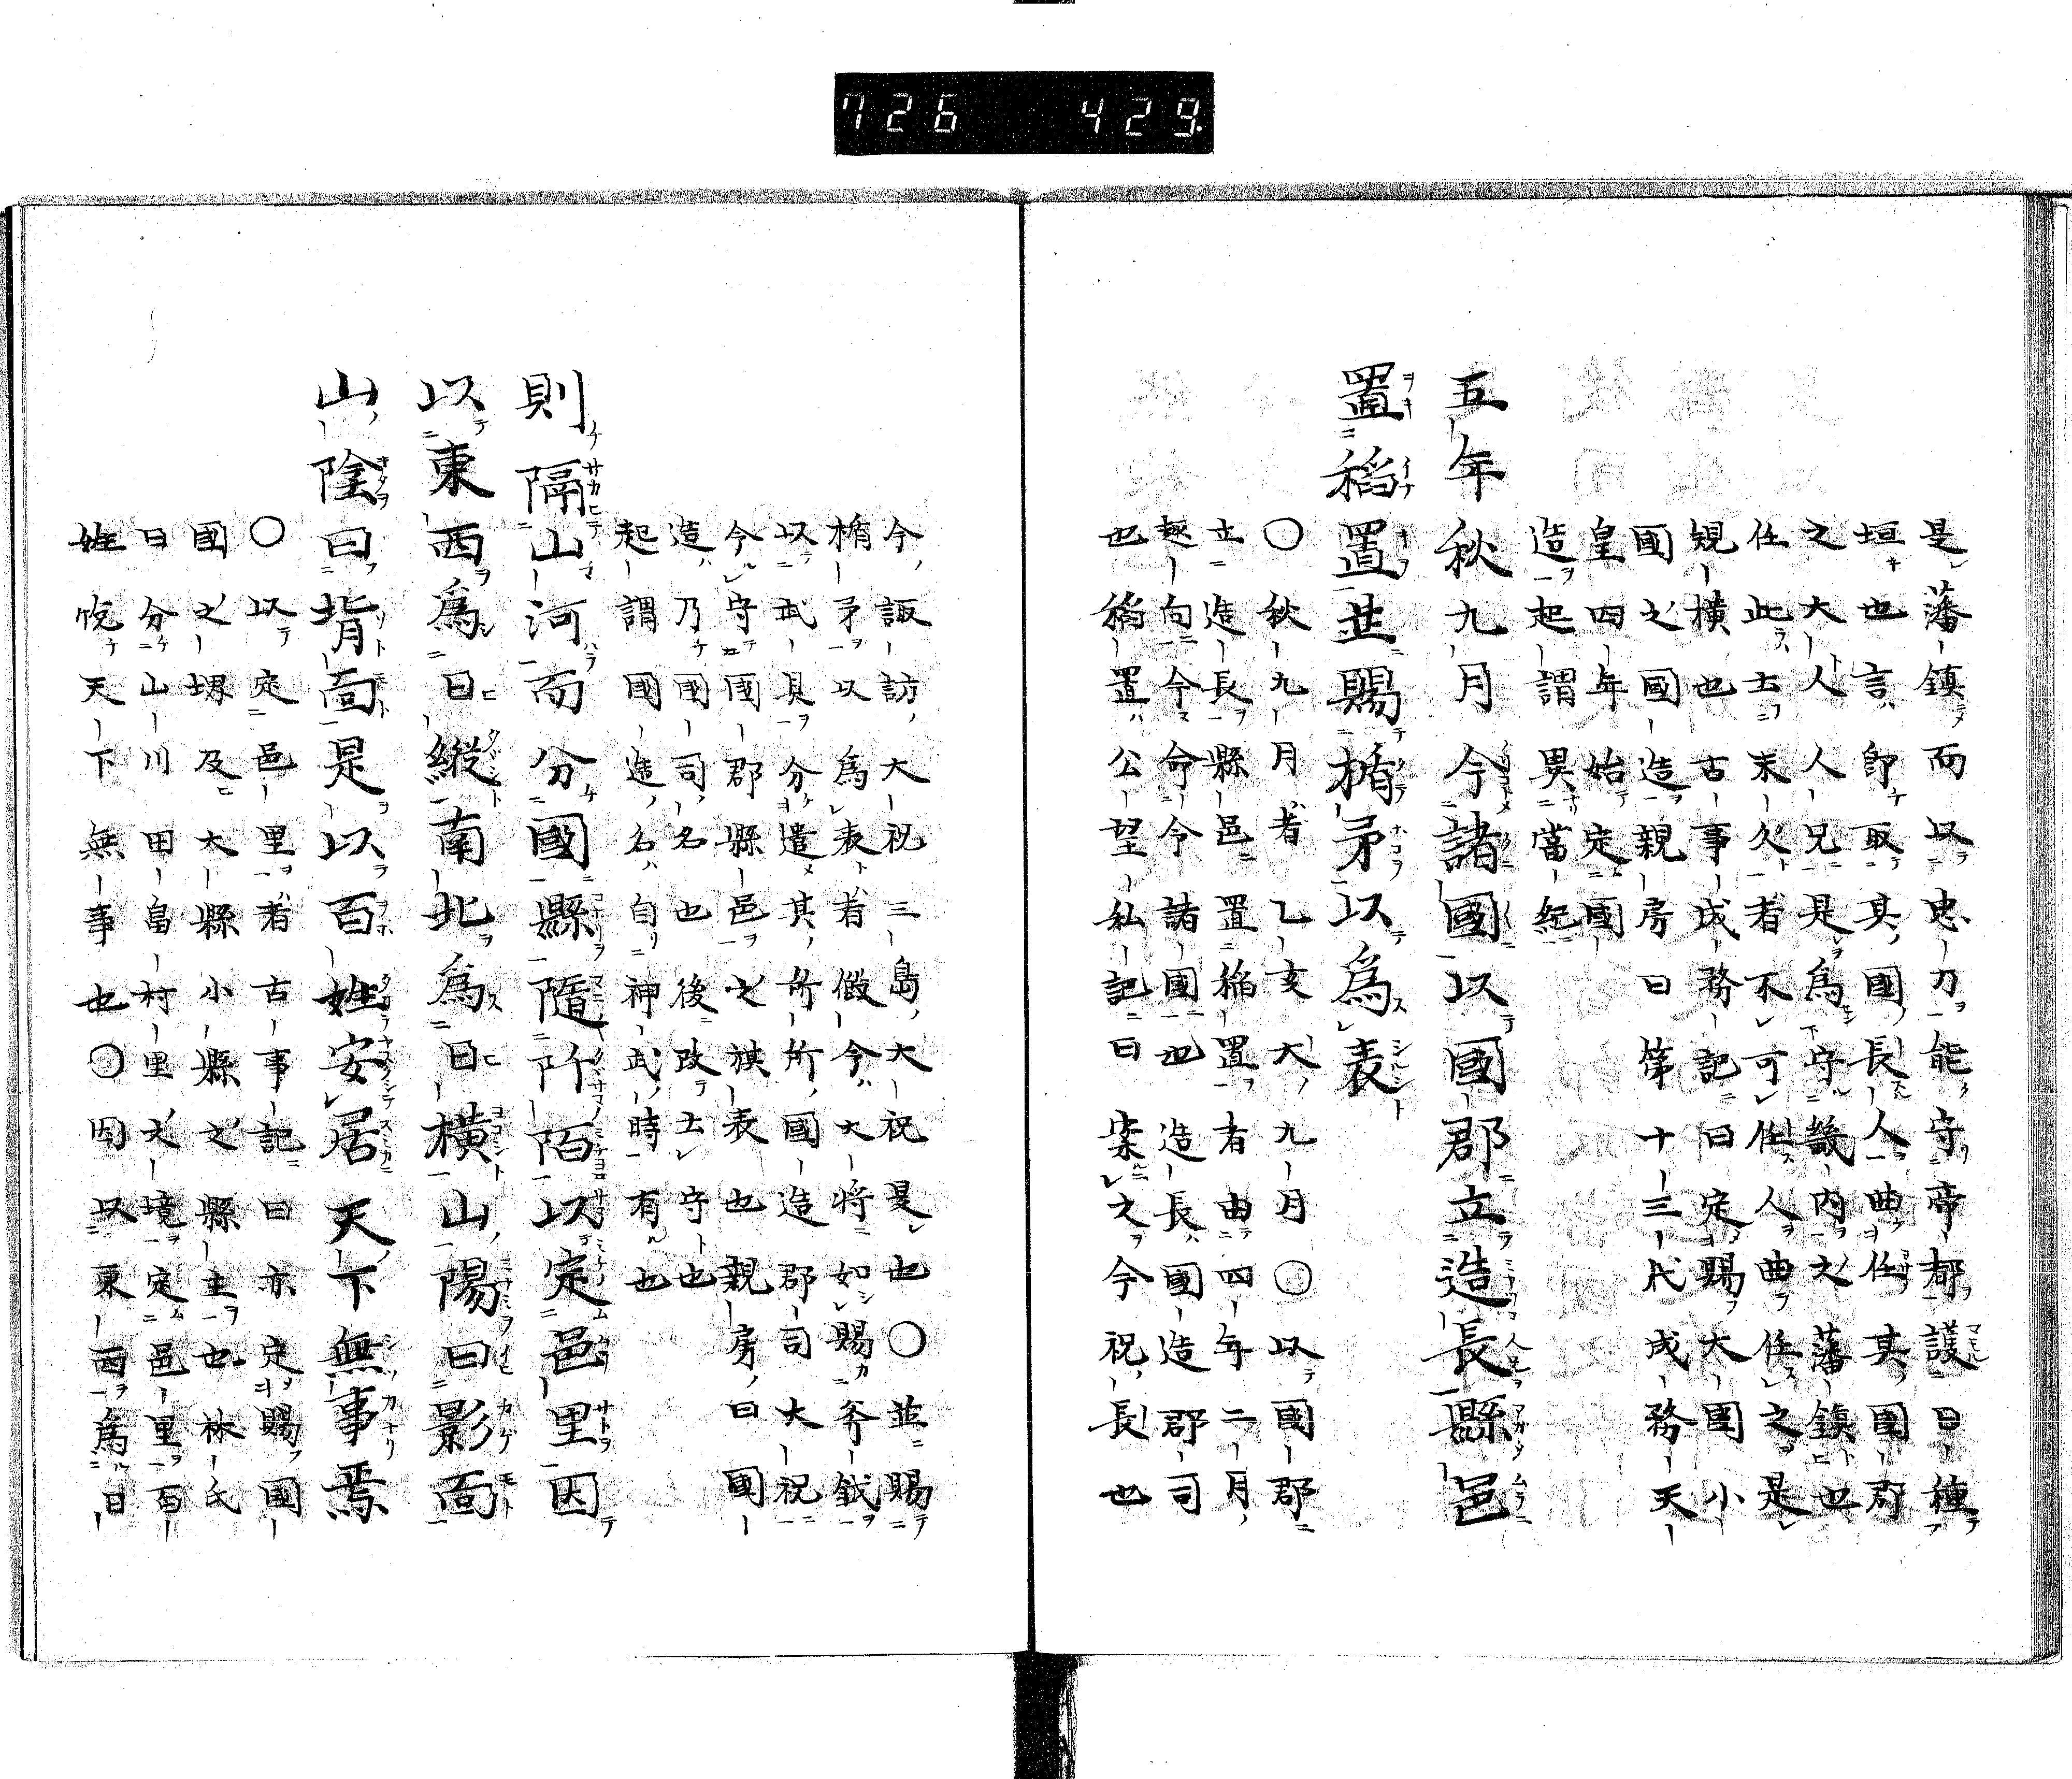 726 429
是藩鎮而以忠力能守帝都護曰種
垣也言即取其國長人曲任其國郡
之大人人兄是爲守畿内之藩鎮也
任此士末久者不可任人曲任之是
規横也古事成務記曰定賜大國小
國之國造親房曰第十三代成務天
皇四年始定國
造起謂異當紀
五年秋九月令諸國以國郡立造長縣邑
置稻置並賜楯矛以爲表
○秋九月者乙亥大九月○以國郡
立造長縣邑置稻置者由四年二月
趣向令命令諸國也造長國造郡司
也稻置公望私記曰柒之今祝長也
今諏訪大祝三島大祝是也○並賜
楯矛以爲表者假令大將如賜斧鉞
以武具分遣其所所國造郡司大祝
令守國郡縣邑之旗表也親房曰國
造乃國司名也後改士守也
起謂國造名自神武時有也
則隔山河而分國縣隨阡陌以定邑里因
以東西爲日縱南北爲日横山陽曰影面
山陰曰背面是以百姓安居天下無事焉
○以定邑里者古事記曰亦定賜國
國之堺及大縣小縣之縣主也林氏
曰分山川田畠村里之境定邑里百
姓悦天下無事也○因以東西爲日